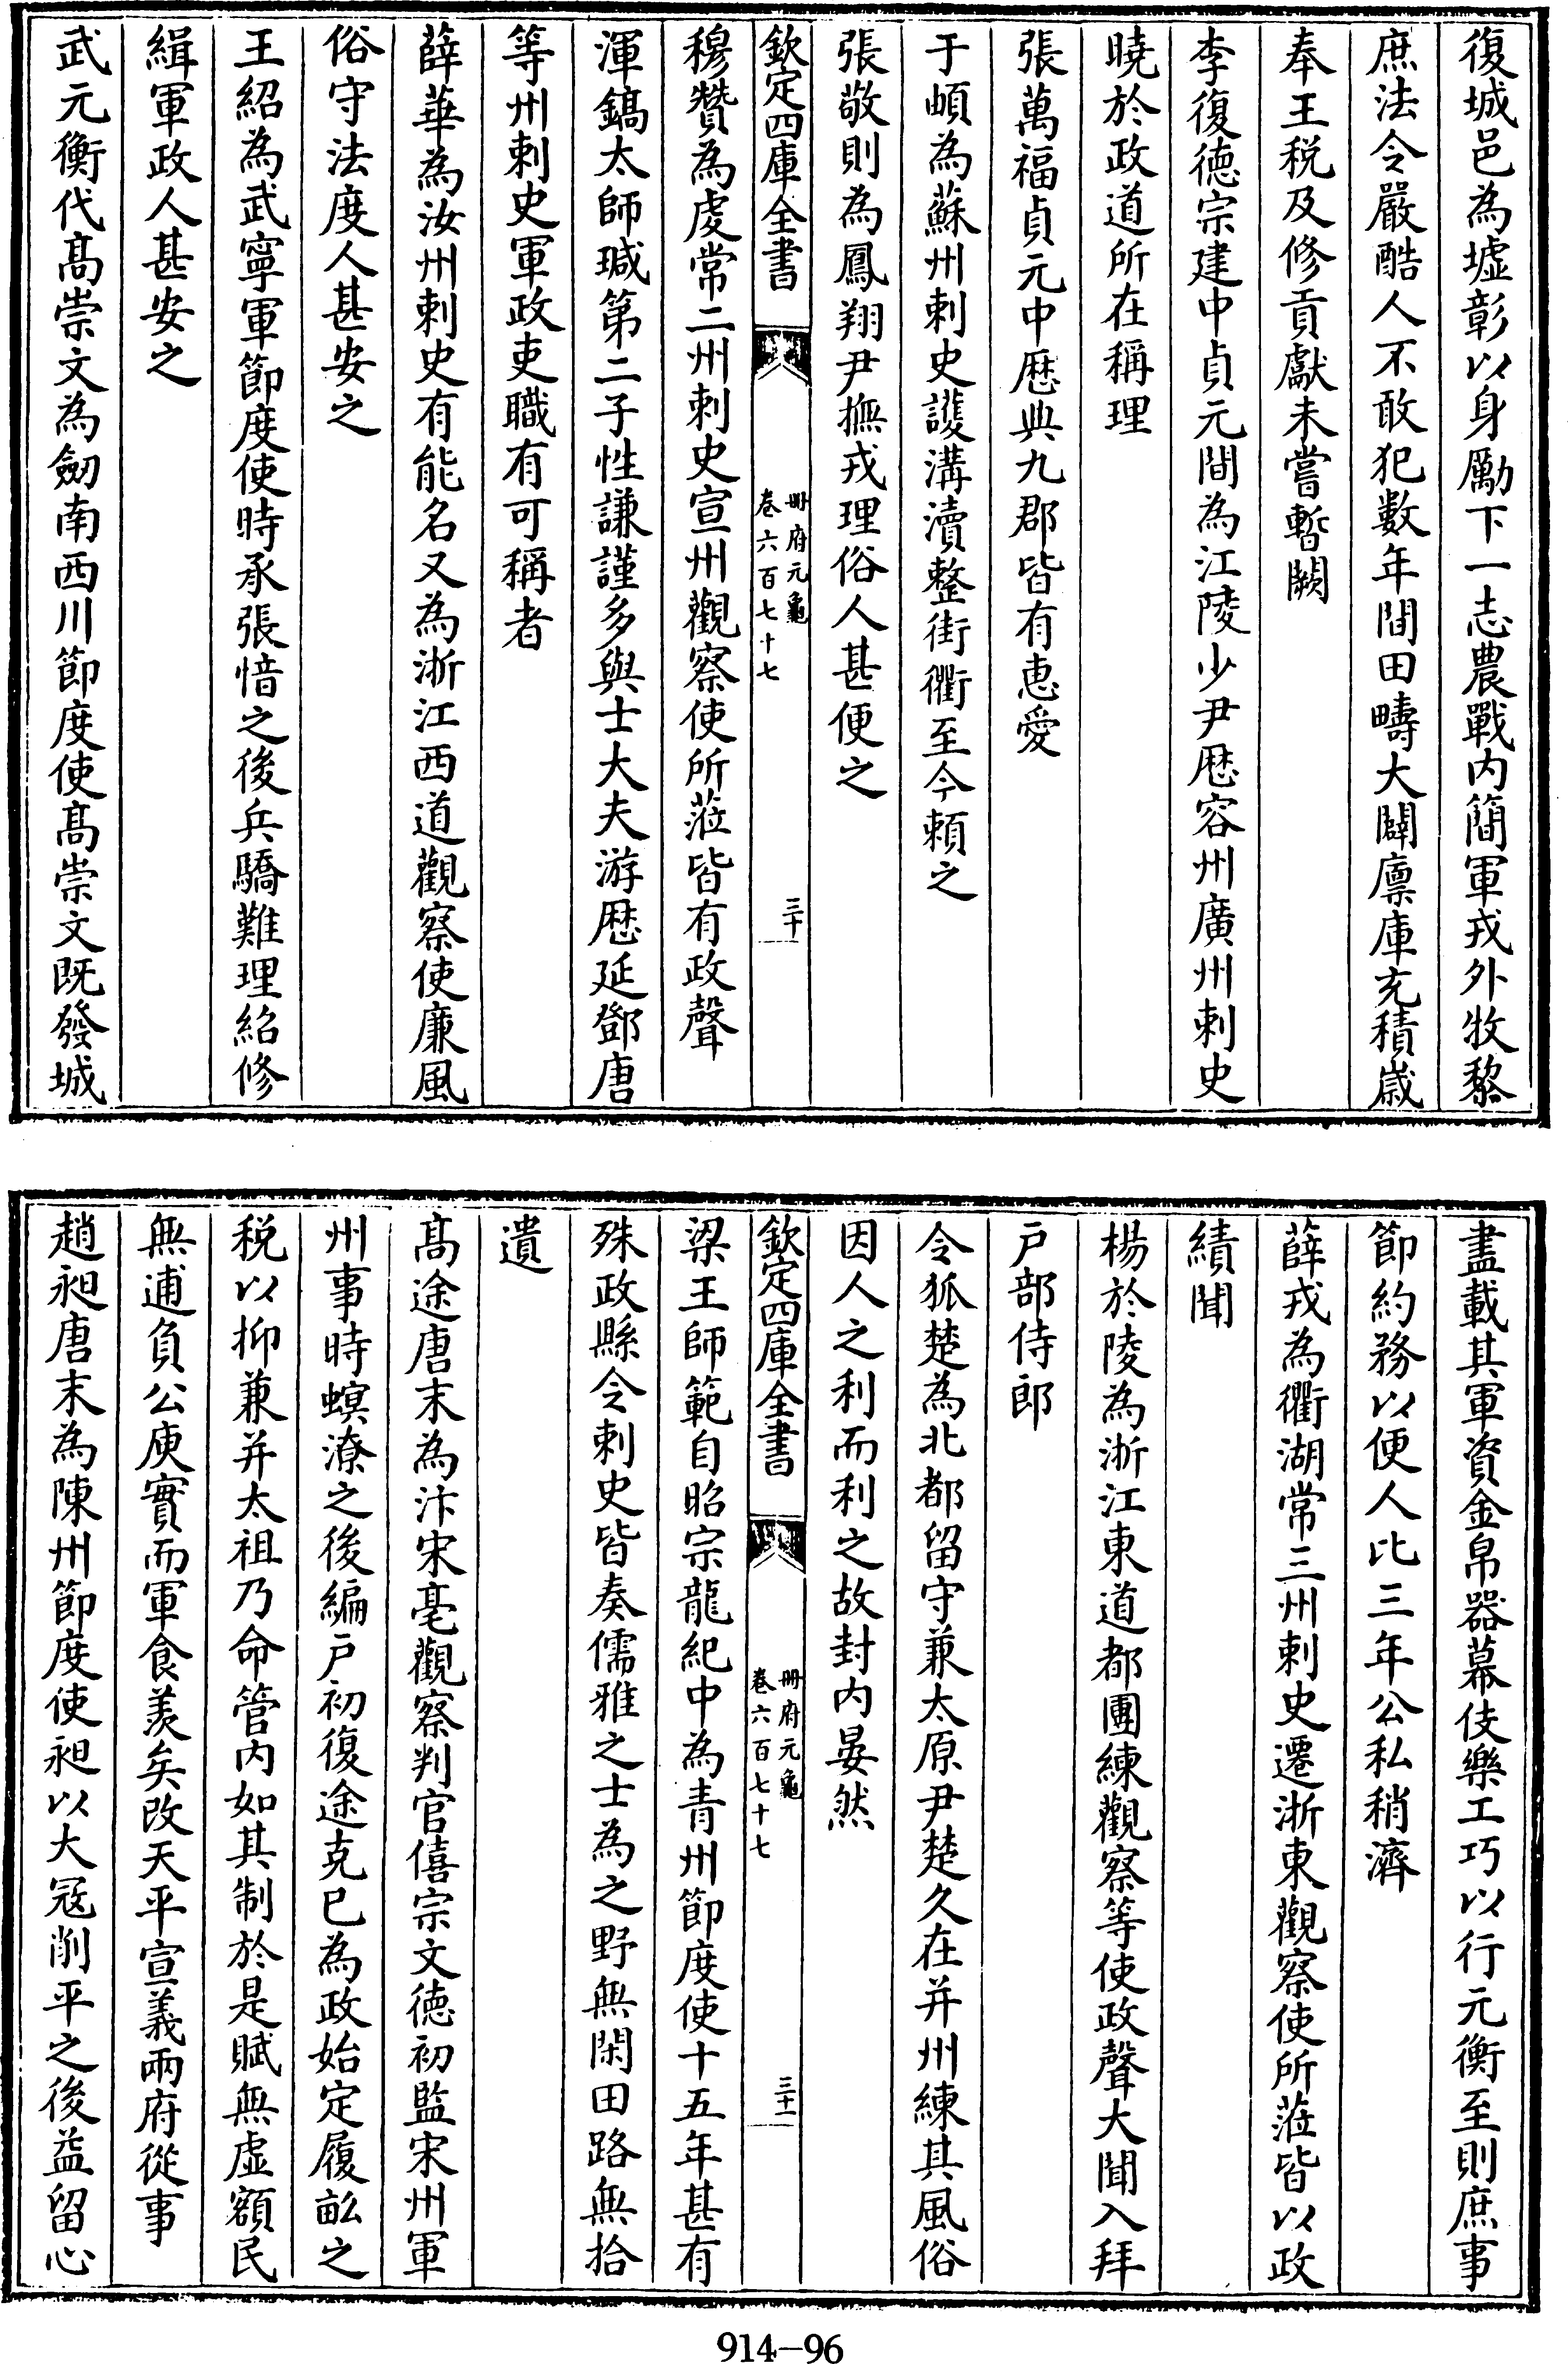 復城邑為墟彰以身勵下一志農戰内簡軍戎外牧黎
庶法令嚴酷人不敢犯數年間田疇大闢廪庫充積歳
奉王税及修貢獻未嘗暫闕
李復德宗建中貞元間為江陵少尹厯容州廣州刺史
曉於政道所在稱理
張萬福貞元中厯典九郡皆有惠愛
于頔為蘇州刺史濩溝瀆整街衢至今頼之
張敬則為鳳翔尹撫戎理俗人甚便之
欽定四庫全書
冊府元龜
卷六百七十七
三十
穆贊為䖍常二州刺史宣州觀察使所蒞皆有政聲
渾鎬太師瑊第二子性謙謹多與士大夫游厯延鄧唐
等州刺史軍政吏職有可稱者
薛華為汝州刺史有能名又為浙江西道觀察使廉風
俗守法度人甚安之
王紹為武寧軍節度使時承張愔之後兵驕難理紹修
緝軍政人甚安之
武元衡代髙崇文為劒南西川節度使髙崇文既發城
盡載其軍資金帛器幕伎樂工巧以行元衡至則庶事
節約務以便人比三年公私稍濟
薛戎為衢湖常三州刺史遷浙東觀察使所蒞皆以政
績聞
楊於陵為浙江東道都團練觀察等使政聲大聞入拜
戸部侍郎
令狐楚為北都留守兼太原尹楚久在并州練其風俗
因人之利而利之故封内晏然
欽定四庫全書
冊府元龜
卷六百七十七
三十一
梁王師範自昭宗龍紀中為青州節度使十五年甚有
殊政縣令刺史皆奏儒雅之士為之野無閑田路無拾
遺
髙途唐末為汴宋亳觀察判官僖宗文德初監宋州軍
州事時螟潦之後編戸初復途克已為政始定履畝之
税以抑兼并太祖乃命管内如其制於是賦無虚額民
無逋負公庾實而軍食羡矣改天平宣義兩府從事
趙昶唐末為陳州節度使昶以大冦削平之後益留心
914-96